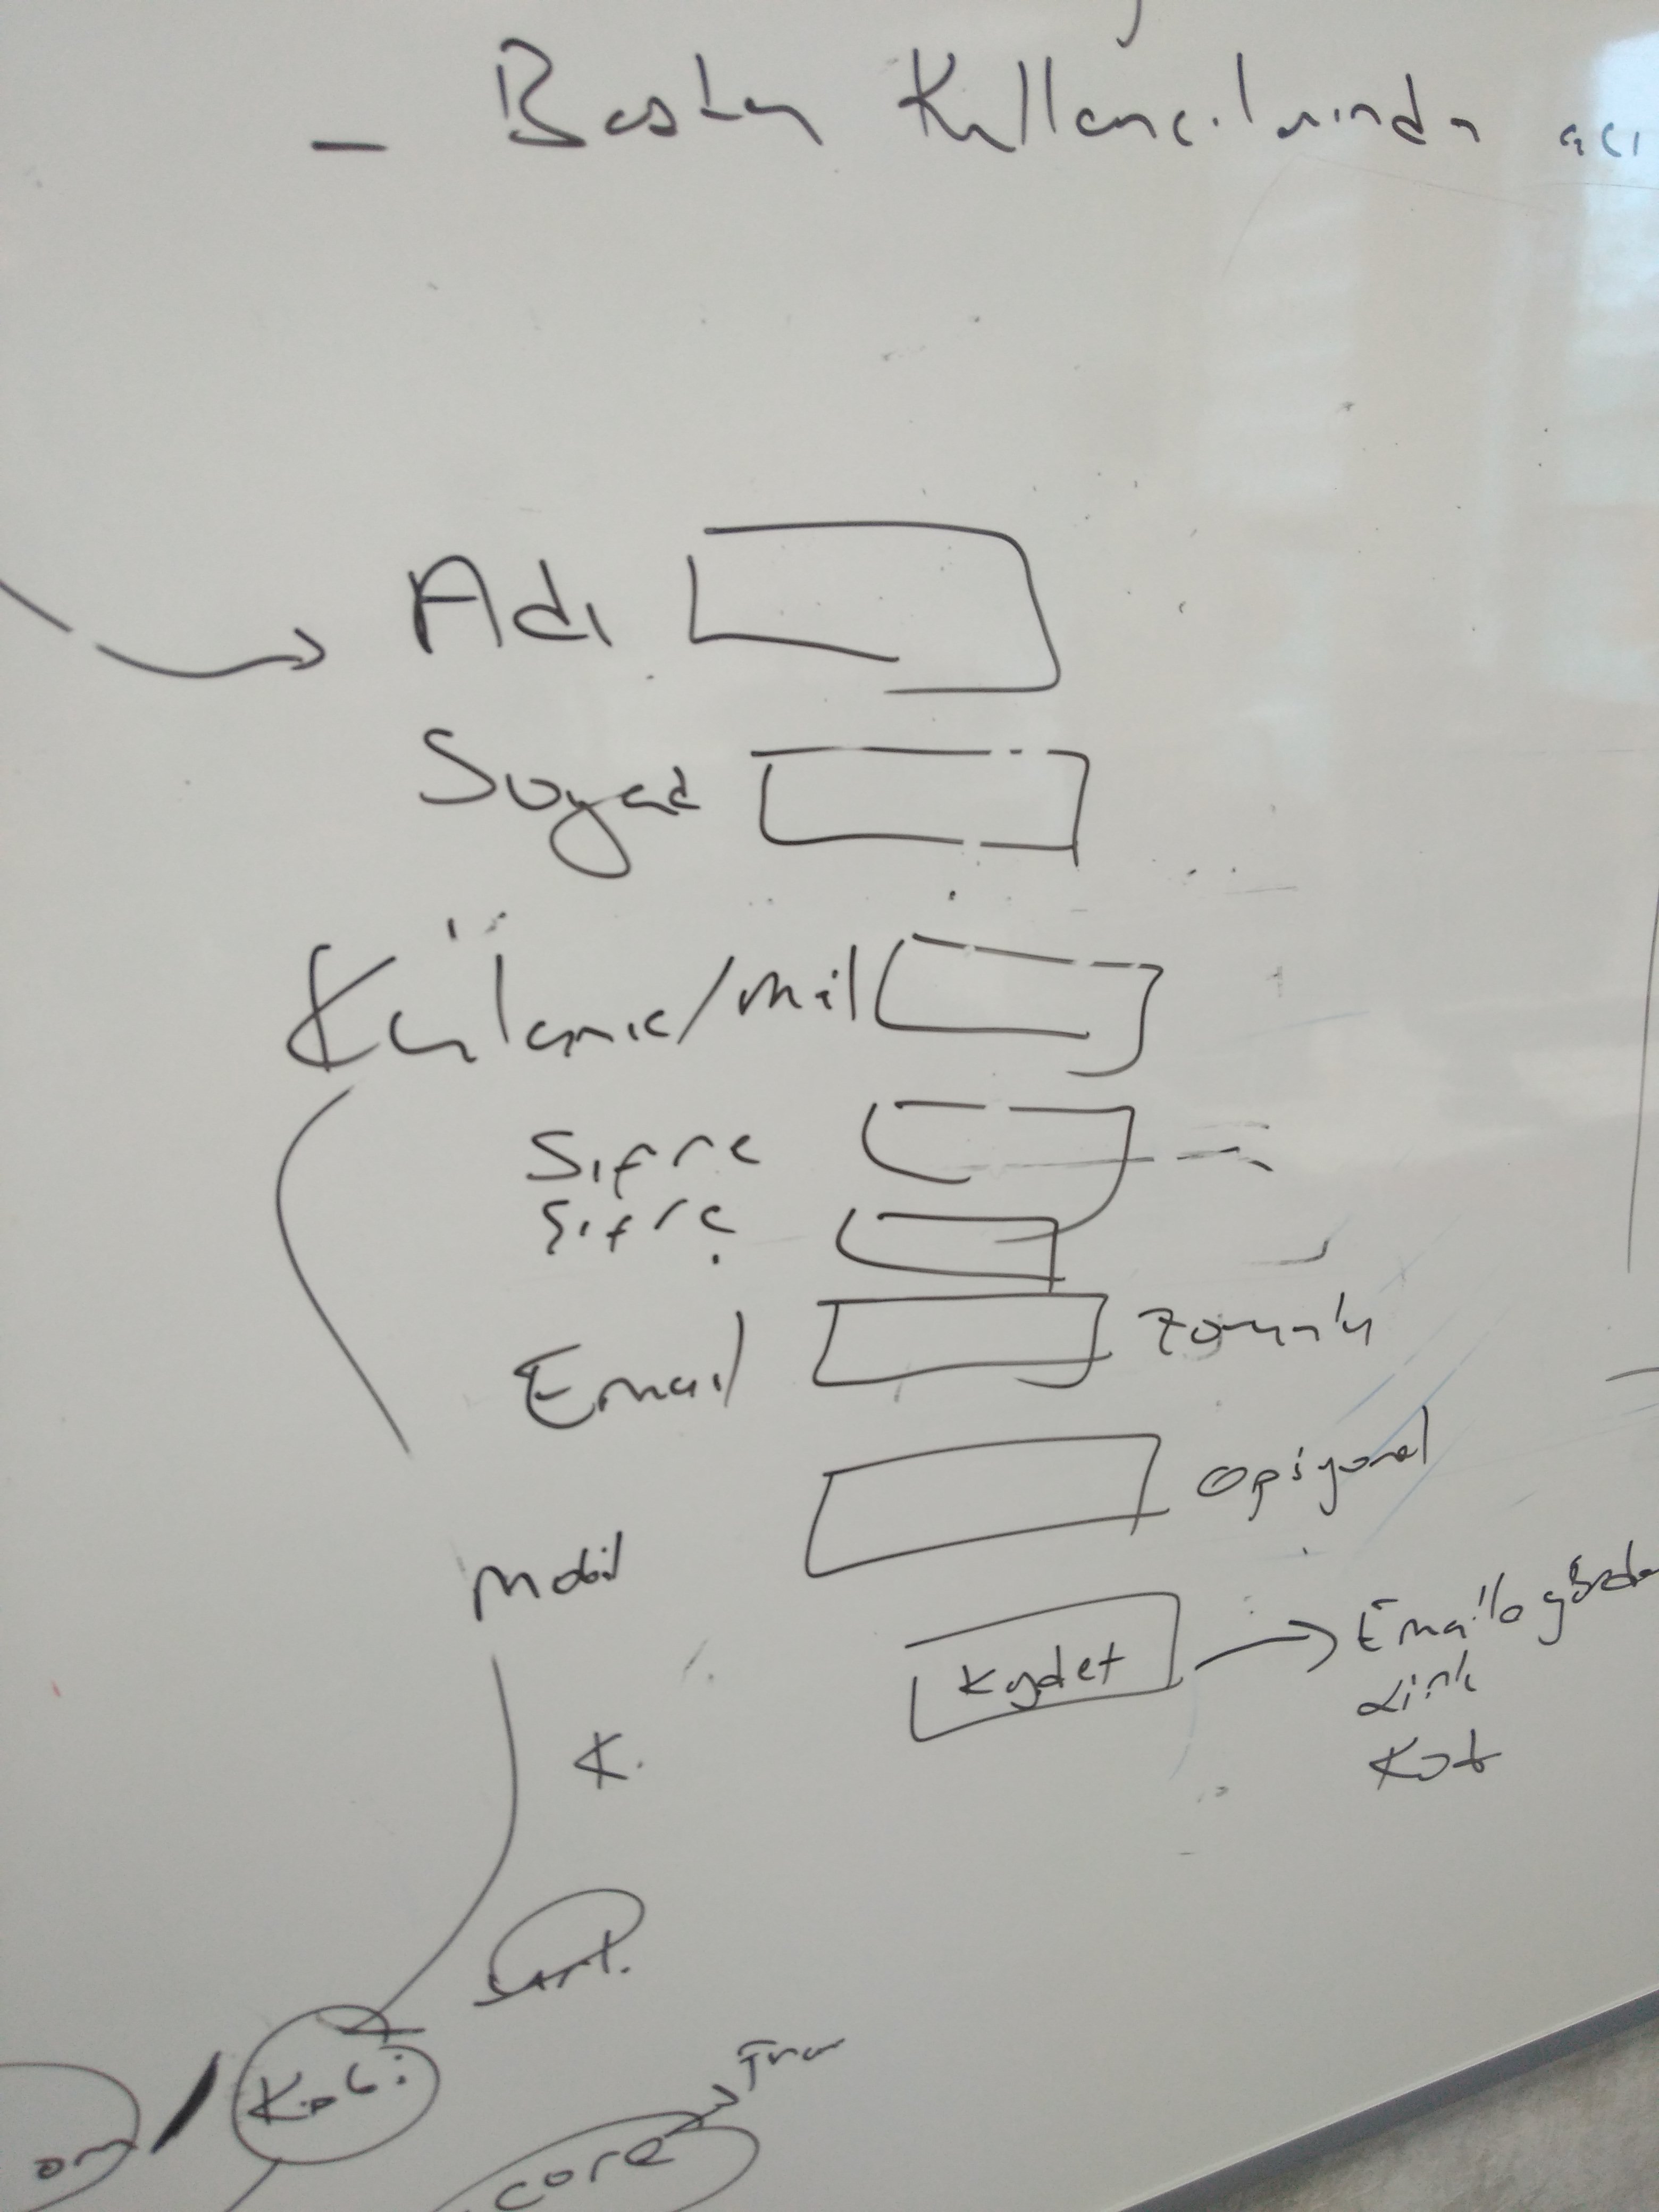 - Bastan Kullancılarında acı
Adı
Soyad
Küllanıc/mail
Sifre
Şifre
Email Zorunlu
Opsiyonel
Mobil
Kaydet → Emaile gönder
Link
Kot
K.
Kobi
on
core